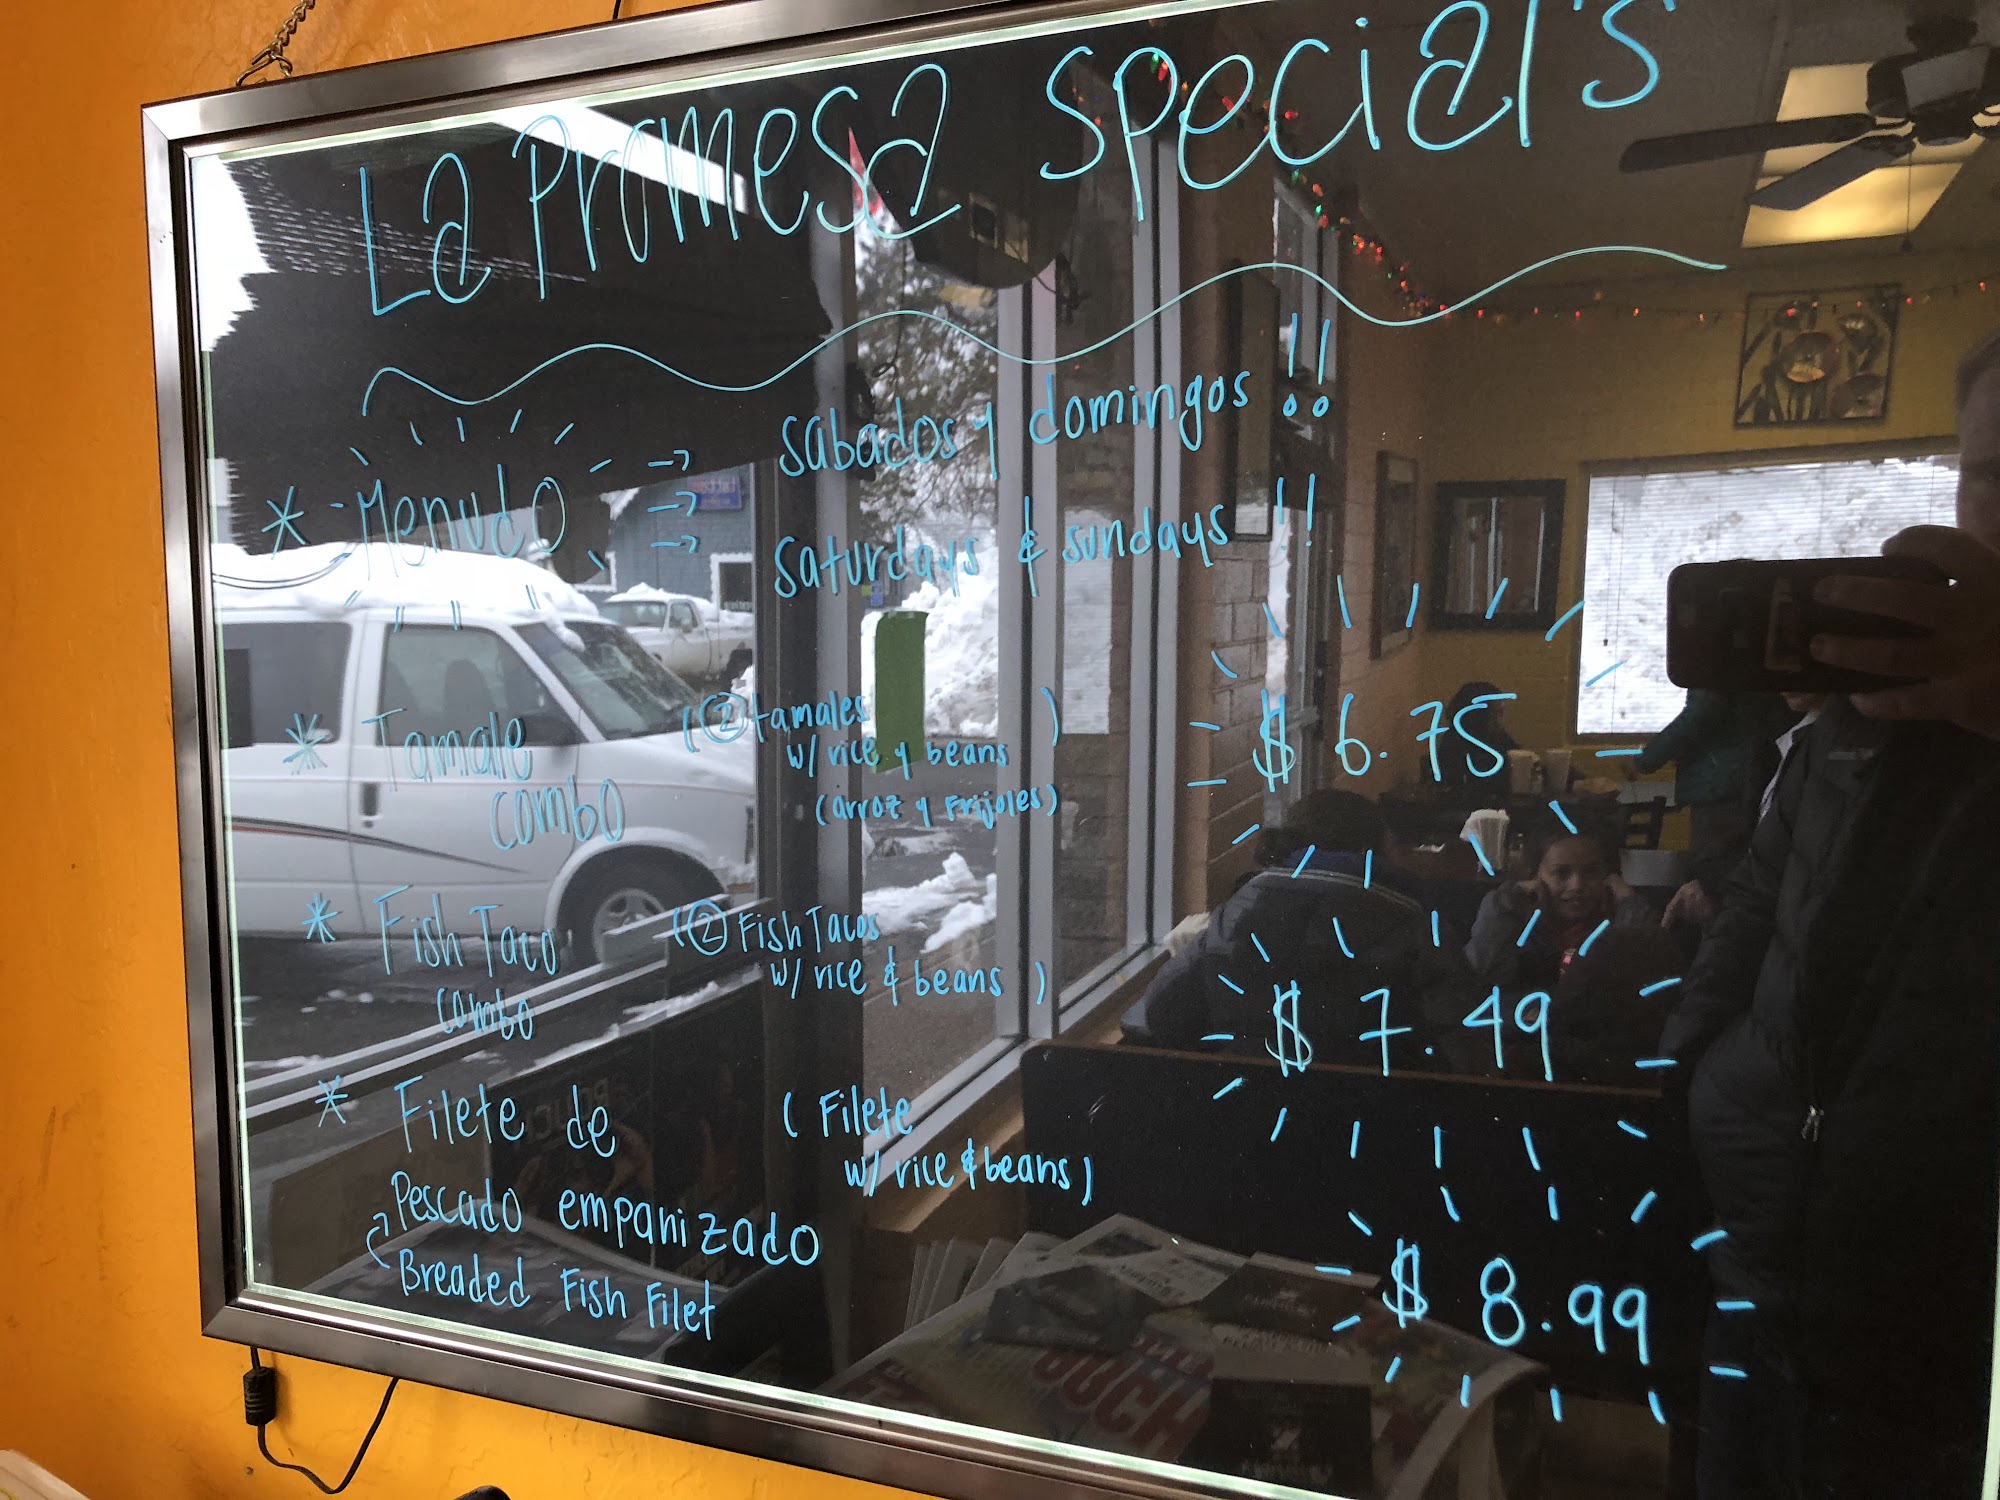 La Promesa Special's
* Menudo → → →
Sabados y domingos !!
Saturdays & sundays !!
* Tamale combo
(② tamales
w/ rice y beans)
(arroz y Frijoles)
$ 6.75
* Fish Taco combo
(② Fish Tacos
w/ rice & beans)
$ 7.49
* Filete de
Pescado empanizado
Breaded Fish Filet
(Filete
w/ rice & beans)
$ 8.99